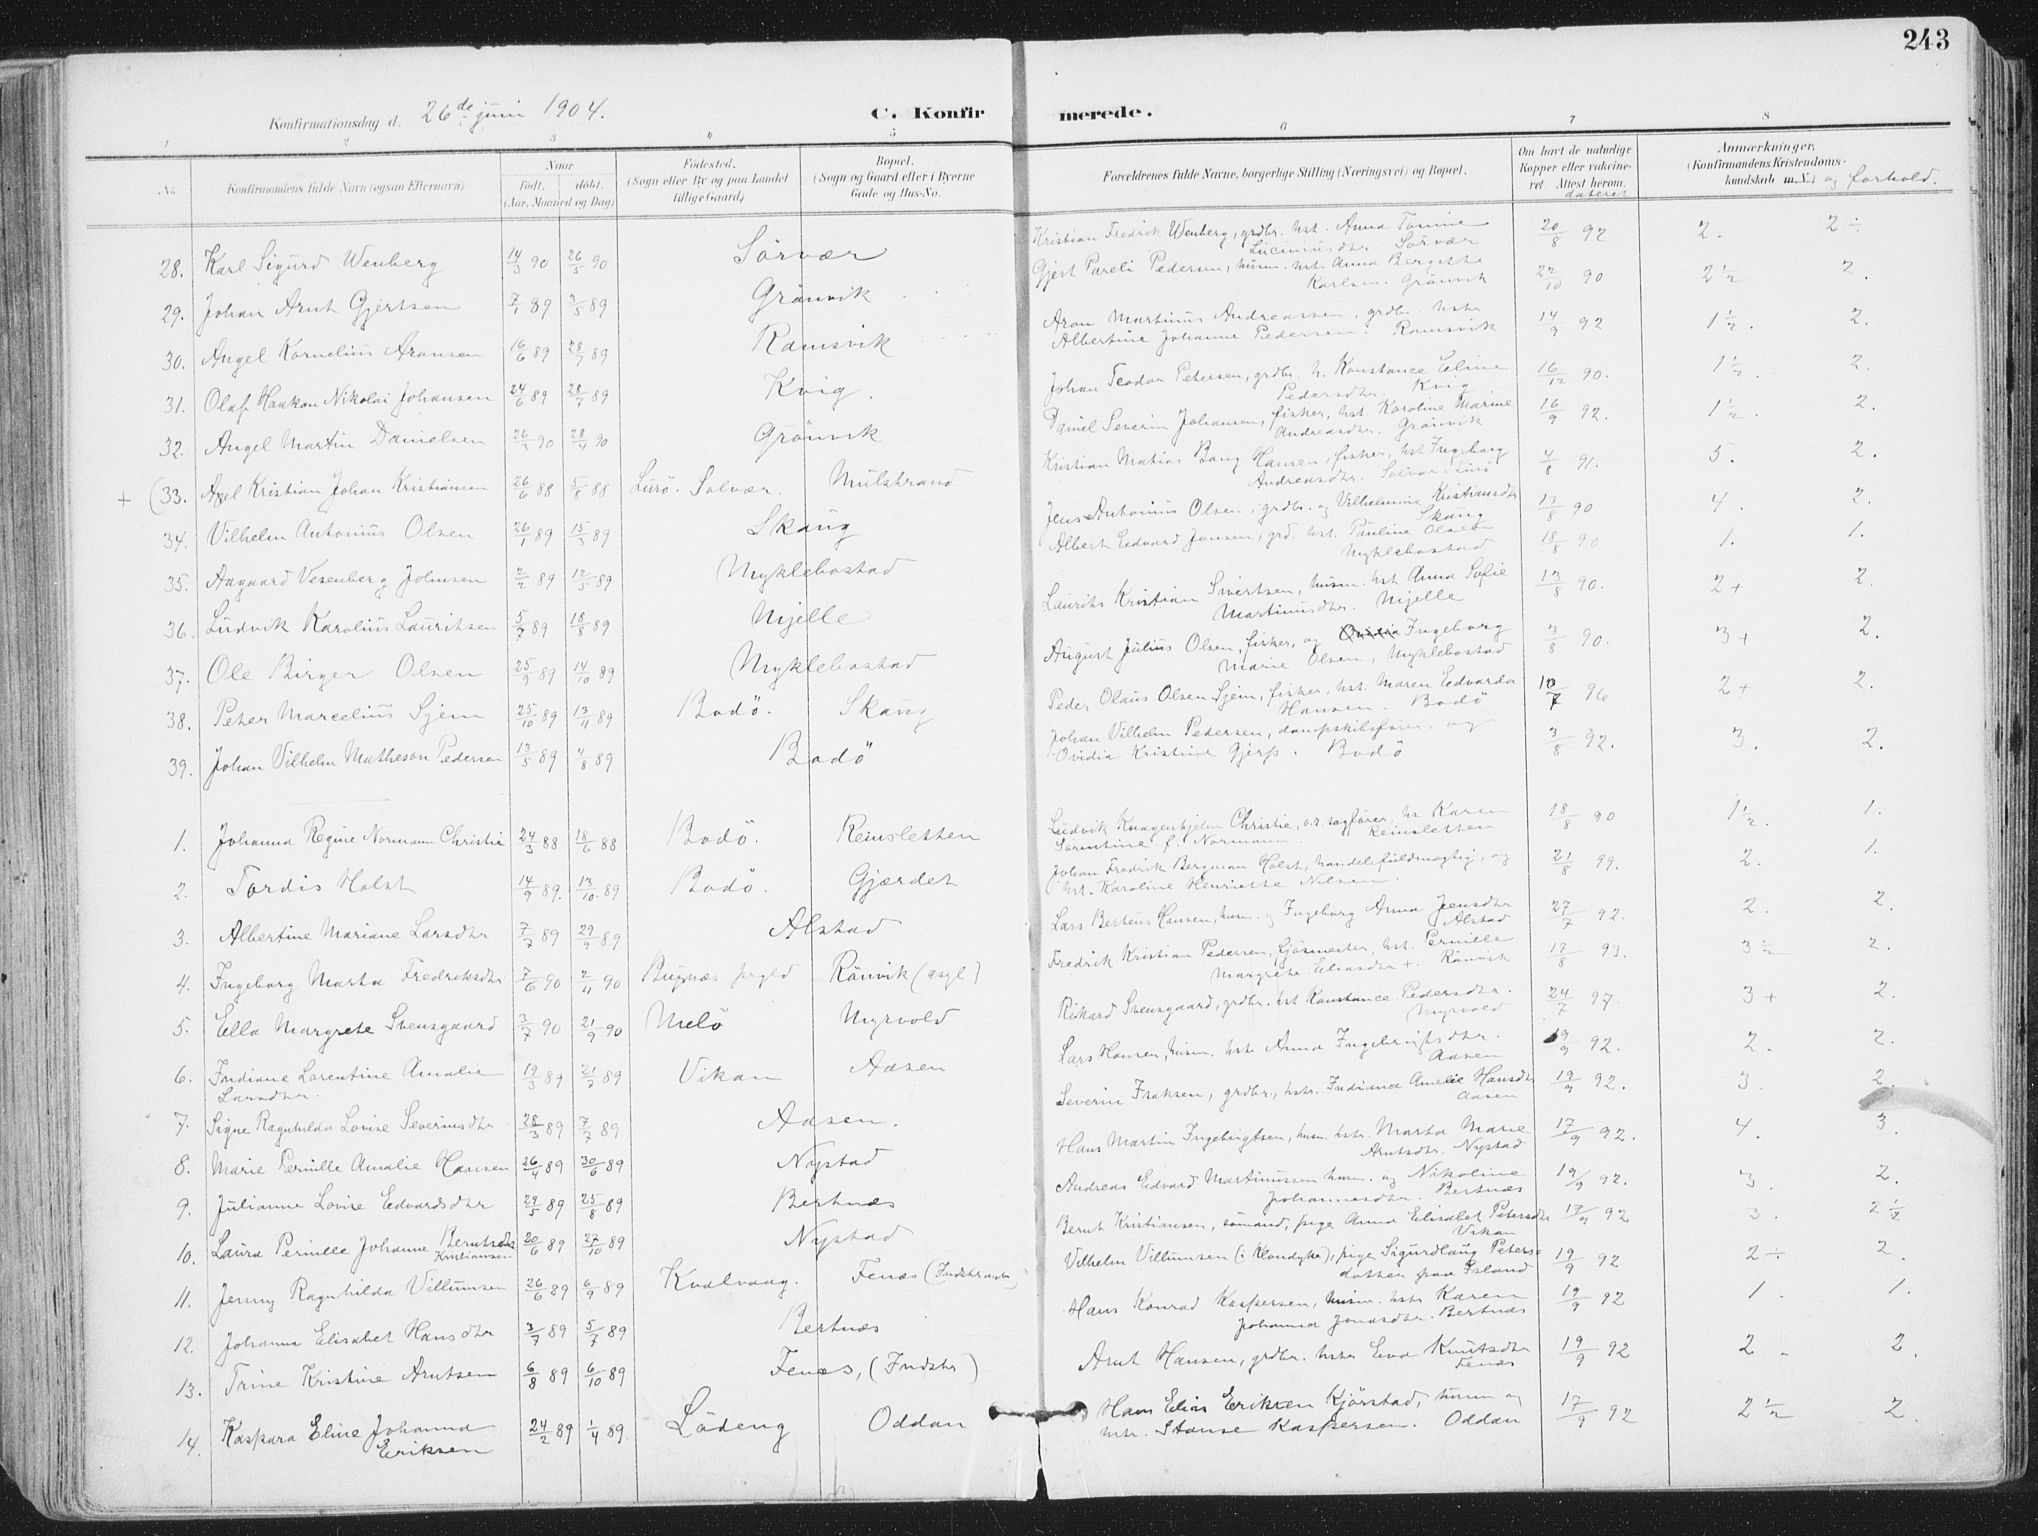 243
Konfirmationsdag d. 26de juni 1904.
C. Konfirmerede.
1 2 3 4 5 6 7 8
No.
Konfirmandens fulde Navn (ogsaa Efternavn)
Naar
födt. döbt.
(Aar, Maaned og Dag)
Födested.
(Sogn eller By og paa Landet
tillige Gaard)
Bopæl.
(Sogn og Gaard eller i Byerne
Gade og Hus-No.
Forældrenes fulde Navne, borgerlige Stilling (Næringsvei) og Bopæl.
Om havt de naturlige
Kopper eller vakcine-
ret Attest herom.
dateret
Anmærkninger.
(Konfirmandens Kristendoms-
kundskab m.V.) og forhold.
28. Karl Sigurd Wenberg 14/3 90 26/5 90 Sörvær Kristian Fredrik Wenberg, grdbr. hst. Anna Tomine 20/8 92 2. 2 ÷
Lucinusdtr. Sörvær
29. Johan Arnt Gjertsen 7/1 89 3/5 89 Grönvik Gjert Pareli Pedersen, husm. hst. Anna Bergitte 22/10 90 2 1/2 2.
Karlsen. Grönvik
30. Angel Kornelius Aronsen 16/6 89 28/7 89 Ramsvik Aron Martinus Andreassen, grdbr. hstr 14/9 92 1 1/2. 2.
Albertine Johanne Pedersen. Ramsvik
31. Olaf Haakon Nikolai Johansen 24/6 89 28/7 89 Kvig. Johan Teodor Petersen, grdbr. h. Konstance Eline 16/12 90. 1 1/2. 2.
Pedersdtr. Kvig
32. Angel Martin Danielsen 26/3 90 28/4 90 Grönvik Daniel Severin Johansen, fisker, hst. Karoline Marine 16/9 92. 1 1/2. 2.
Andreasdtr. Grönvik
+ (33. Axel Kristian Johan Kristiansen 26/6 88 5/8 88 Lurö. Solvær. Mulstrand Kristian Matias Bang Hansen, fisker, hst Ingeborg 4/8 91. 5. 2.
Andreasdtr. Solvær. Lurö
34. Vilhelm Antonius Olsen 26/1 89 15/3 89 Skaug Jens Antonius Olsen, grdbr. og Vilhelmine Kristiansdtr 13/8 90 4. 2.
Skaug
35. Aagaard Vesenberg Johnsen 2/2 89 12/5 89 Myklebostad Albert Edvard Jonsen, grd. hst. Pauline Olsen 18/8 90 1. 1.
Myklebostad
36. Ludvik Karolius Lauritsen 5/7 89 18/8 89 Mjelle Laurits Kristian Sivertsen, husm. hst Anna Sofie 13/8 90. 2 + 2.
Martinusdtr. Mjelle
37. Ole Birger Olsen 25/9 89 14/10 89 Myklebostad August Julius Olsen, fisker, og Ingeborg 3/8 90. 3 + 2.
Marie Olsen, Myklebostad
38. Peter Marcelius Sjem 25/10 89 13/11 89 Bodö. Skaug Peder Olaus Olsen Sjem, fisker, hst. Maren Edvarda 10/7 96 2 + 2.
Hansen. Bodö
39. Johan Vilhelm Matheson Pedersen 13/5 89 4/8 89 Bodö Johan Vilhelm Pedersen, dampskibsförer, og 3/8 92. 3. 2.
Ovidia Kristine Gjerp. Bodö
1. Johanna Regine Normann Christie 24/3 88 18/6 88 Bodö. Reinsletten Ludvik Christie, o.r. sagförer, h. Karen 18/8 90 1 1/2. 1.
Sörentine f. Normann. Reinsletten
2. Tordis Holst 14/9 89. 13/10 89 Bodö. Gjærdet Johan Fredrik Bergman Holst, handelsfuldmægtig, og 21/8 99. 2. 1.
hst. Karoline Henriette Nilsen.
3. Albertine Mariane Larsdtr 7/7 89 29/9 89 Alstad Lars Berteus Hansen, husm. og Ingeborg Anna Jensdtr 27/7 92. 2. 2.
Alstad
4. Ingeborg Marta Fredriksdtr 7/6 90 2/11 90 Bugnæs prgld Rönvik (asyl) Fredrik Kristian Pedersen, fjösmester, hst. Pernille 17/8 93. 3 ÷ 2.
Margrete Eliasdtr +. Rönvik
5. Ella Margrete Svensgaard 3/7 90 21/9 90 Melö Myrvold Rikard Svensgaard, grdbr. hst Konstance Pedersdtr. 24/7 97. 3 + 2.
Myrvold
6. Indiane Lorentine Amalie 19/3 89 21/7 89 Vikan Aasen Lars Hansen, husm. hst. Anna Ingebrigtsdtr. 19/9 92. 2. 2.
Larsdtr. Aasen
7. Signe Ragnhilda Lovise Severinsdtr 28/3 89 7/7 89 Aasen. Severin Isaksen, grdbr., hstr. Indiana Amalie Hansdtr 19/9 92. 3. 2.
Aasen
8. Marie Pernille Amalie Hansen 26/4 89 30/6 89 Nystad Hans Martin Ingebrigtsen, husm. hstr. Marta Marie 17/9 92. 4. 3.
Arntsdtr. Nystad
9. Julianne Lovise Edvardsdtr 29/5 89 25/8 89 Bertnæs Andreas Edvard Martinussen husm. og Nikoline 19/9 92. 3. 2.
Johannesdtr. Bertnæs
10. Laura Pernille Johanne Berntsdtr 20/6 89 27/10 89 Nystad Bernt Kristiansen, sömand, pige Anna Elisabet Petersdtr 17/9 92 3. 2 1/2
Kristiansen Vikan
11. Jenny Ragnhilda Villumsen 26/6 89 6/9 89 Kvalvaag. Fenæs (Indstranden) Vilhelm Villumsen (i Klondyke), pige Sigurdlaug Peters= 19/9 92 2 ÷ 2.
datter paa Island
12. Johanna Elisabet Hansdtr 3/7 89 5/7 89 Bertnæs Hans Konrad Kaspersen, husm. hstr Karen 19/9 92 1. 1.
Johanna Jonasdtr. Bertnæs
13. Trine Kristine Arntsen 6/8 89 6/10 89 Fenæs, (Indstr) Arnt Hansen, grdbr. hstr Eva Knutsdtr 19/9 92 2 2.
Fenæs
14. Kaspara Eline Johanna 24/2 89 1/4 89. Lödeng Oddan Hans Elias Eriksen Kjörstad, husm og 17/9 92 2 1/2 2.
Eriksen hstr. Stanse Kaspersen. Oddan